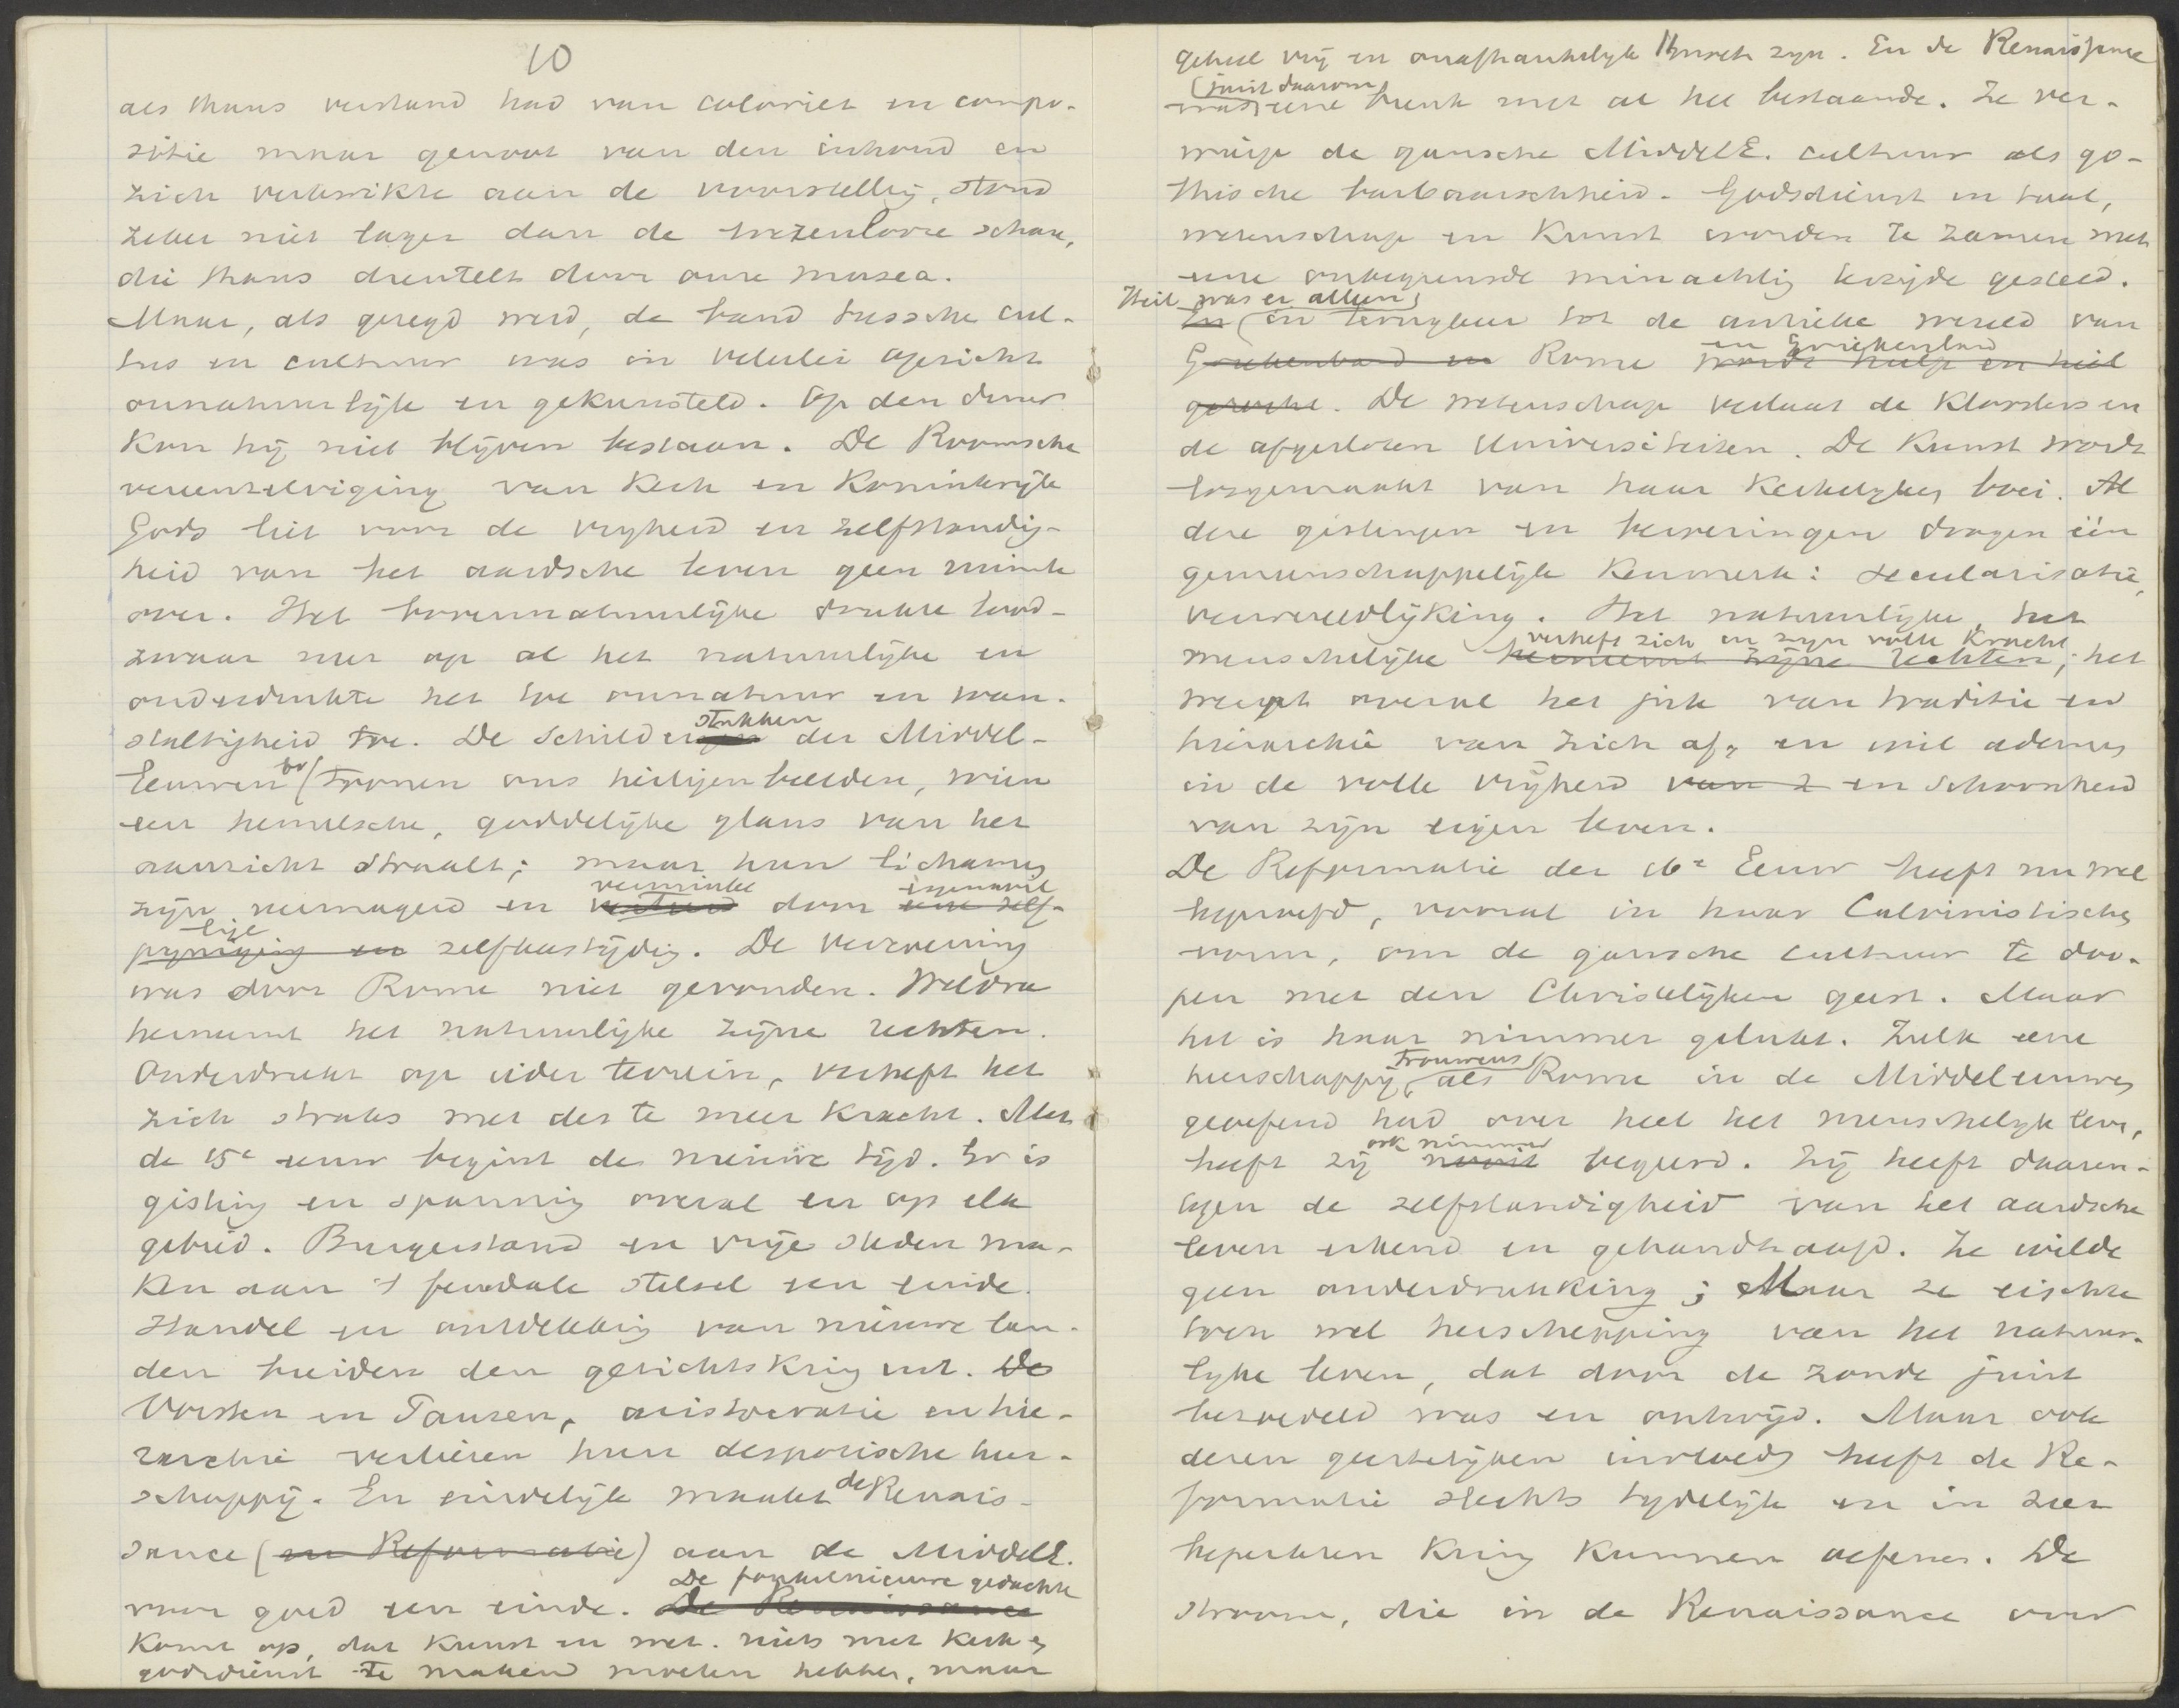 10
als thans verstand had van coloriet en compo-
sitie maar genoot van den inhoud en
zich verkwikte aan de voorstelling, stond
zeker niet lager dan de wezenlooze schare,
die thans drentelt door onze musea.
Maar, als gezegd werd, de band tussche cul-
tus en cultuur was in velerlei opzicht
onnatuurlijk en gekunsteld. Op den duur
kon hij niet blijven bestaan. De Roomsche
vereenzelviging van Kerk en Koninkrijk
Gods liet voor de vrijheid en zelfstandig-
heid van het aardsche leven geen ruimte
over. Het bovennatuurlijke drukte lood-
zwaar neer op al het natuurlijke en
onderdrukte het toe onnatuur en wan-
staltigheid toe. De Schilderstukken der Middel-
Eeuwen bv toonen ons heiligenbeelden, wien
een hemelsche, goddelijke glans van het
aanzicht straalt; maar hun lichamen
zijn vermagerd en verminkt door eigenwil
lige pijniging en zelfkastijding. De verzoening
was door Rome niet gevonden. Weldra
herneemt het natuurlijke zijne rechten.
Onderdrukt op ieder terrein, verheft het
zich straks met des te meer kracht. Met
de 15e eeuw begint de nieuwe tijd. Er is
gisting en spanning overal en op elk
gebied. Burgerstand en vrije steden ma-
ken aan 't feudale stelsel een einde.
Handel en ontdekking van nieuwe lan-
den breiden den gezichtskring uit. De
Vorsten en Pausen, aristocratie en hie-
rarchie verliezen hun despotische heer-
schappij. En eindelijk maakt de Renais-
sance (en Reformatie) aan de MiddelE.
De fonkelnieuwe gedachte
voor goed een einde. De Renaissance
komt op, dat kunst en wet. niets met kerk en
godsdienst te maken moeten hebben, maar
geheel vrij en onafhankelijk moeten zijn. En de Renaissance
(juist daarom
was eene breuk met al het bestaande. Ze ver-
wierp de gansche MiddelE. cultuur als go-
thische barbaarschheid. Godsdienst en taal,
wetenschap en Kunst worden te zamen met
eene onbegrensde minachting terzijde gesteld.
Heil was er alleen
In (in terugkeer tot de antieke wereld van
en Griekenland
Griekenland en Rome wordt hulp en heil
gezocht. De wetenschap verlaat de Kloosters en
de afgesloten Universiteiten. De Kunst wordt
losgemaakt van haar Kerkelijken boei. Al
deze gistingen en beweringen dragen één
gemeenschappelijk Kenmerk: secularisatie,
verwereldlijking. Het natuurlijke, het
verheft zich in zijn volle Kracht
menschelijke herneemt zijne rechten; het
werpt overal het juk van traditie en
hiërarchie van zich af, en wil ademen
in de volle vrijheid van z en schoonheid
van zijn eigen leven.
De Reformatie der 16e Eeuw heeft nu wel
beproefd, vooral in haar Calvinistischen
vorm, om de gansche cultuur te doo-
pen met den Christelijken geest. Maar
het is haar nimmer gelukt. Zulk eene
trouwens
heerschappij, als Rome in de Middeleeuwen
geoefend had over heel het menschelijk leven,
ook nimmer
heeft zij nooit begeerd. Zij heeft daaren-
tegen de zelfstandigheid van het aardsche
leven erkend en gehandhaafd. Ze wilde
geen onderdrukking; Maar ze eischte
toen wel herschepping van het natuur-
lijke leven, dat door de zonde juist
bezoedeld was en ontwijd. Maar ook
dezen geestelijken invloed heeft de Re-
formatie slechts tijdelijk en in zeer
beperkten Kring kunnen oefenen. De
stroom, die in de Renaissance over